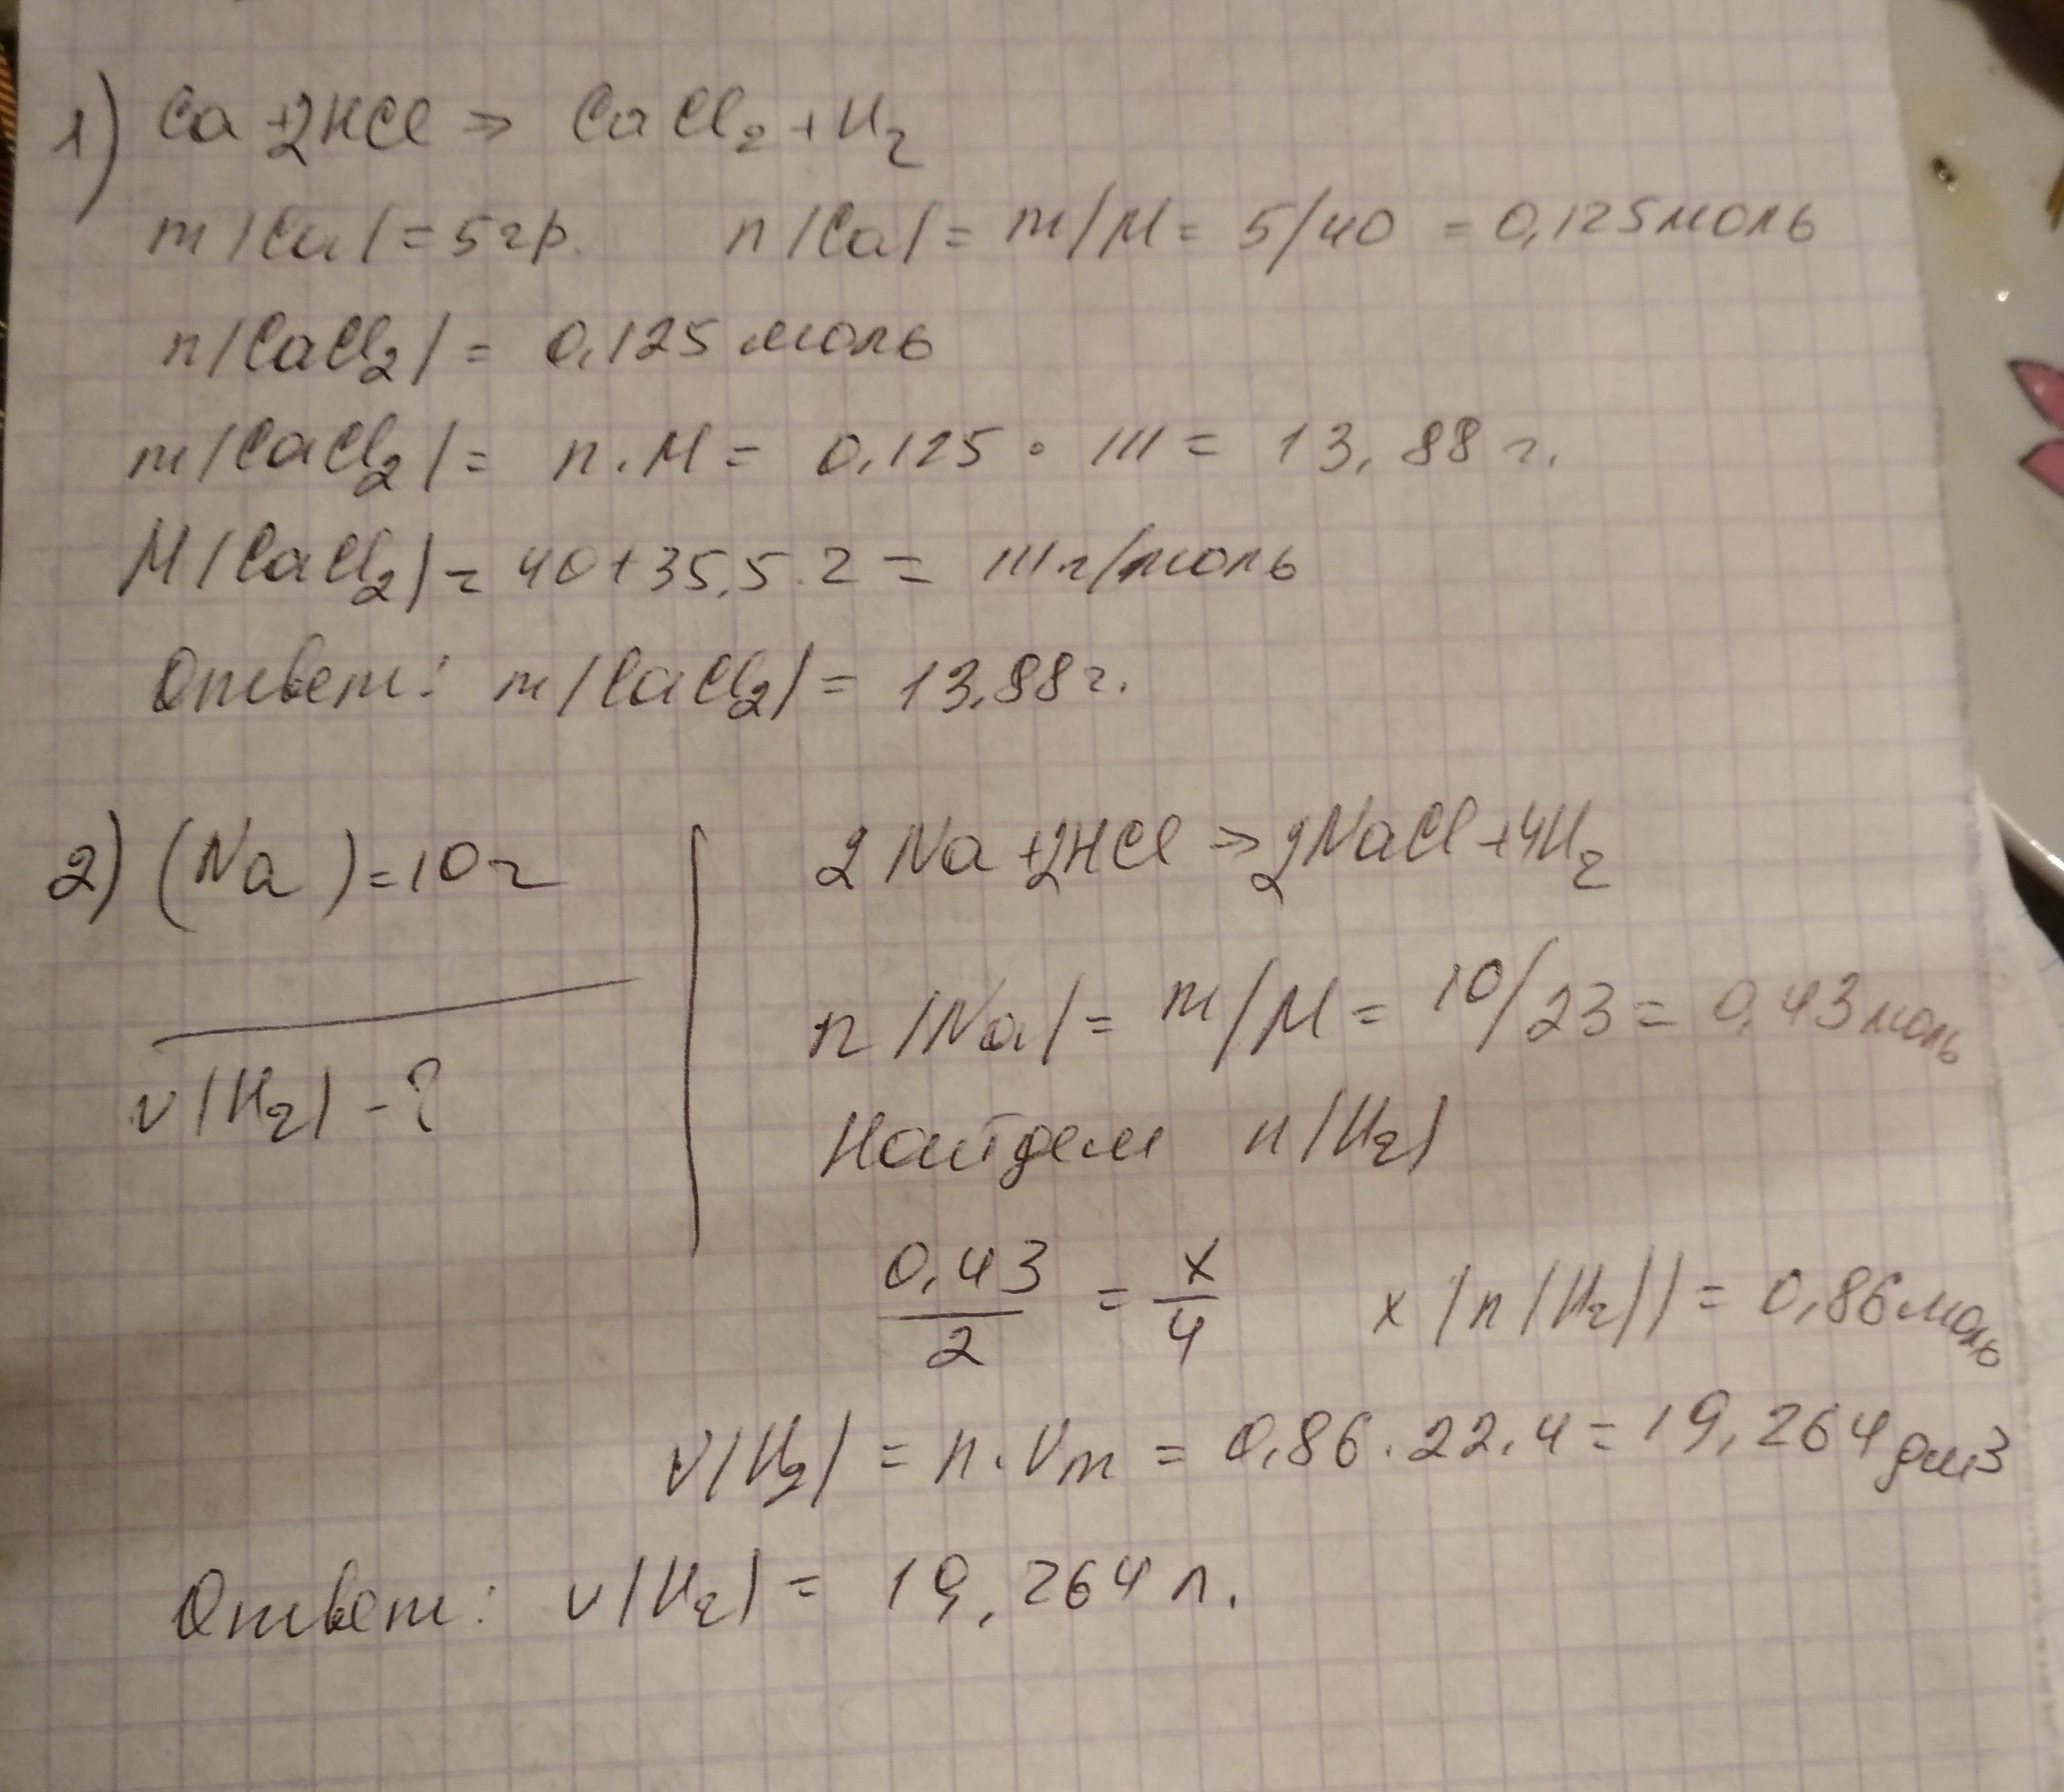 1) Ca + 2HCl => CaCl₂ + H₂
m/Ca/ = 5гр. n/Ca/ = m/M = 5/40 = 0,125 моль
n/CaCl₂/ = 0,125 моль
m/CaCl₂/ = n . M = 0,125 • 111 = 13,88 г.
M/CaCl₂/ = 40 + 35,5 . 2 = 111 г/моль
Ответ: m/CaCl₂/ = 13,88 г.
2) (Na) = 10 г
v/H₂/ - ?
2Na + 2HCl => 2NaCl + 4H₂
n/Na/ = m/M = 10/23 = 0,43 моль
Найдем n/H₂/
0,43/2 = x/4 x/n/H₂// = 0,86 моль
V/H₂/ = n . Vm = 0,86 . 22,4 = 19,264 дм3
Ответ: v/H₂/ = 19,264 л.